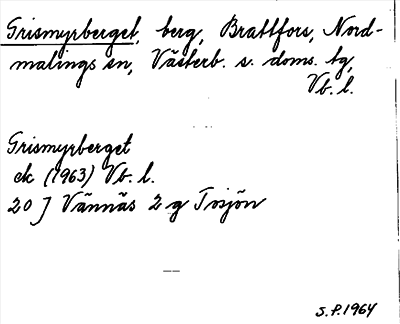 Grismyrberget, berg, Brattfors, Nord-
malings sn, Västerb. s. doms. tg,
Vb. l.
Grismyrberget
ek (1963) Vb. l.
20 J Vännäs 2 g Tosjön
S.P. 1964